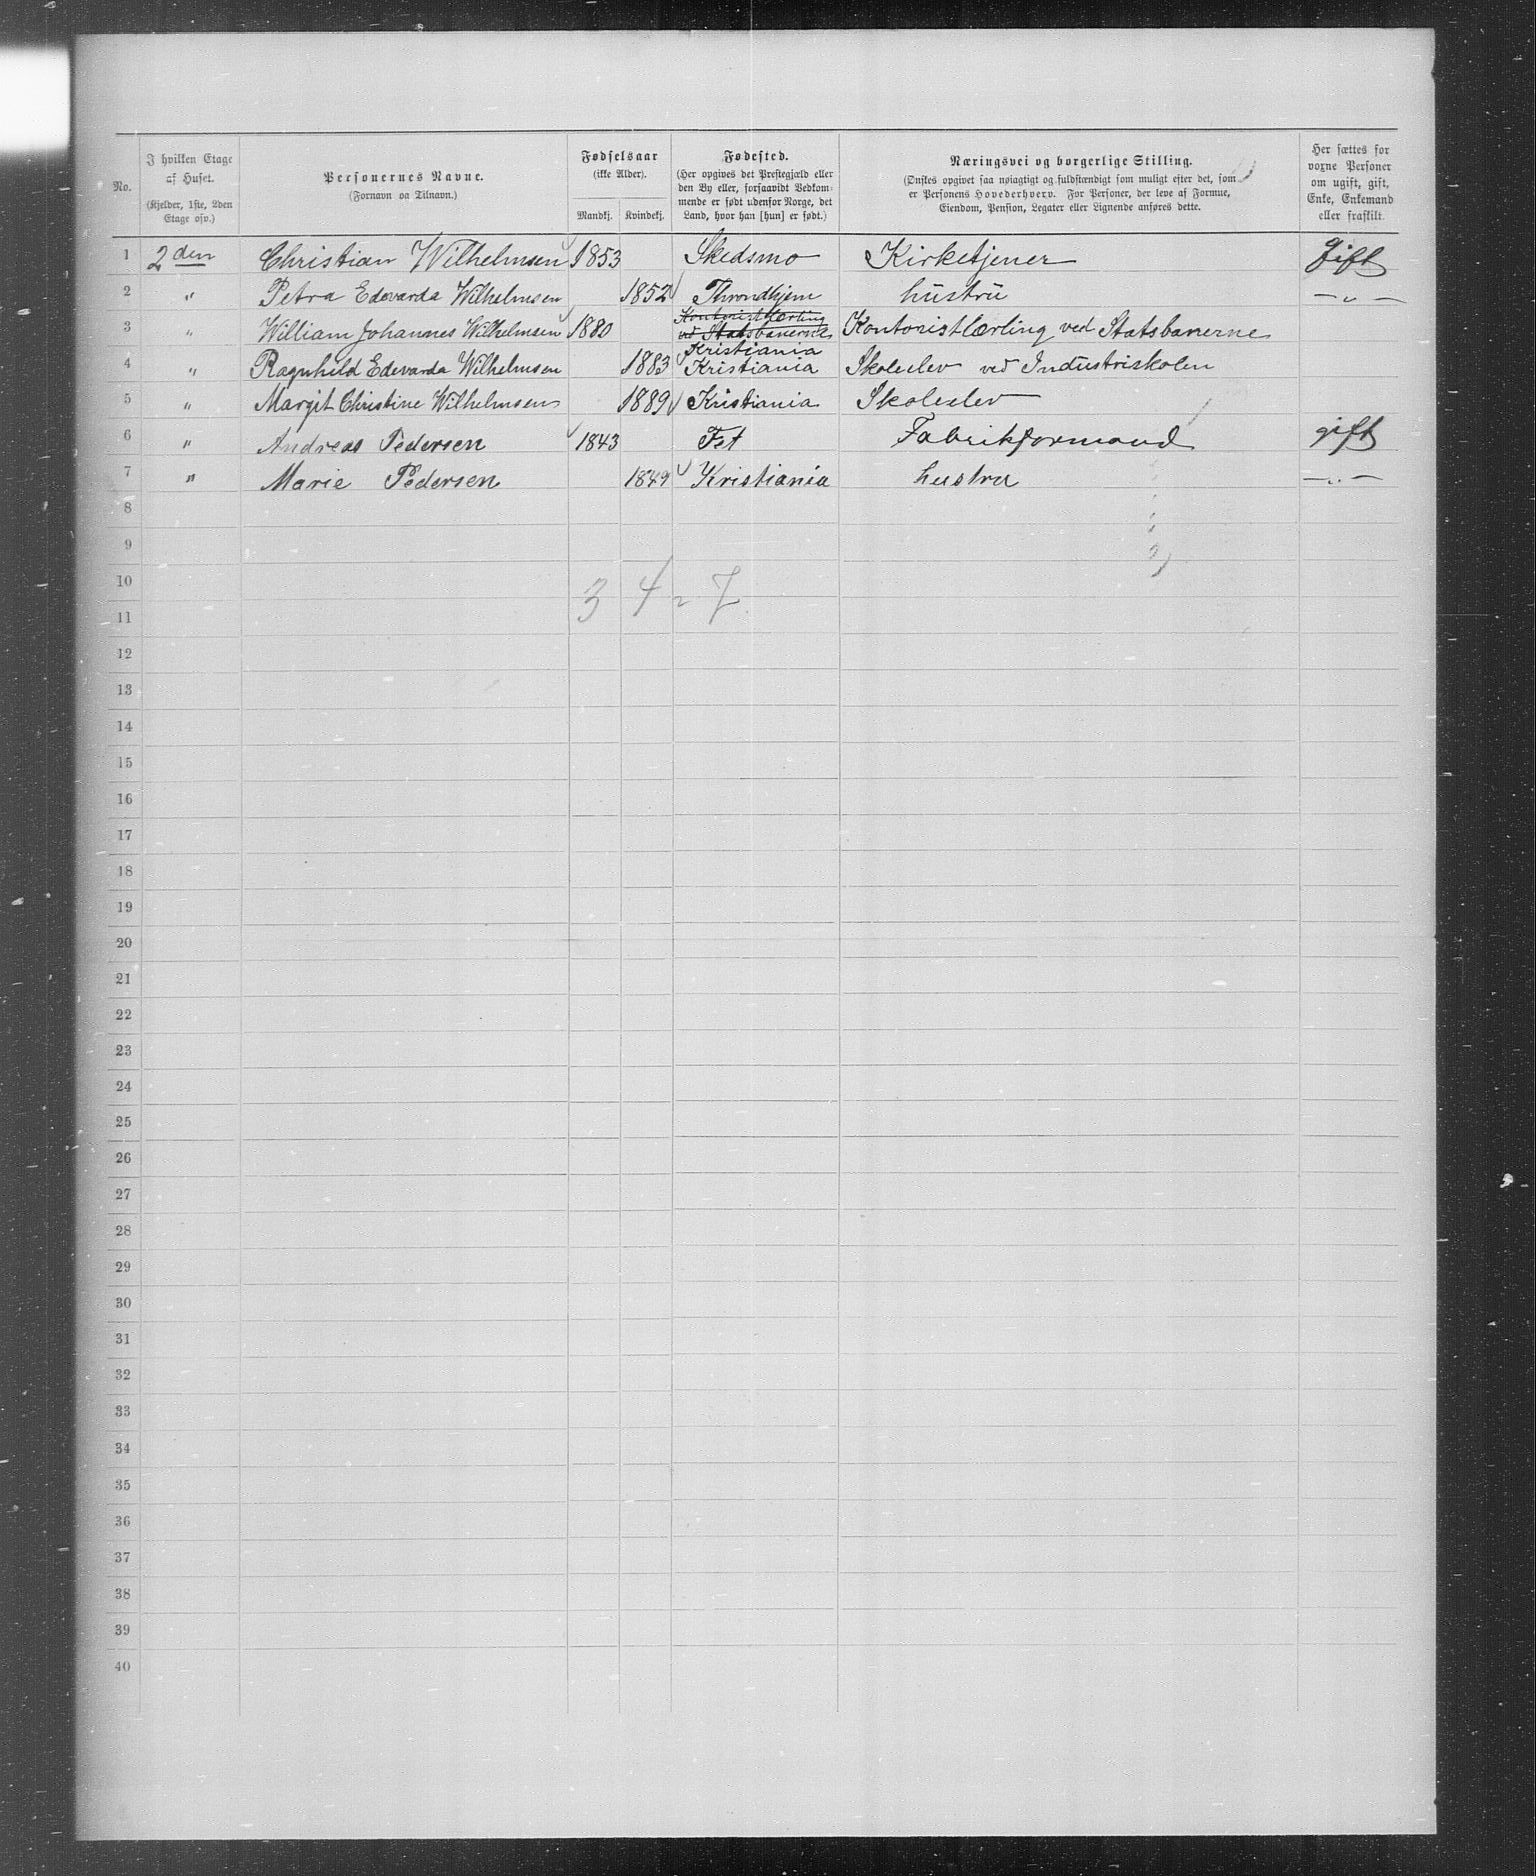 No.
I hvilken Etage
af Huset.
(Kjelder, 1ste, 2den
Etage osv.)
Personernes Navne.
(Fornavn og Tilnavn.)
Fødselsaar
(ikke Alder).
Mandkj. Kvindekj.
Fødested.
(Her opgives det Prestegjæld eller
den By eller, forsaavidt Vedkom-
mende er født udenfor Norge, det
Land, hvor han [hun] er født.)
Næringsvei og borgerlige Stilling.
(Ønskes opgivet saa nøiagtigt og fuldstændigt som muligt efter det, som
er Personens Hovederhverv. For Personer, der leve af Formue,
Eiendom, Pension, Legater eller Lignende anføres dette.
Her sættes for
voxne Personer
om ugift, gift,
Enke, Enkemand
eller fraskilt.
1 2den Christian Wilhelmsen 1853 Skedsmo Kirketjener gift
2 " Petra Edevarda Wilhelmsen 1852 Throndhjem hustru — " —
Kontoristlærling
3 " William Johannes Wilhelmsen 1880 ved Statsbanerne Kontoristlærling ved Statsbanerne
Kristiania
4 " Ragnhild Edevarda Wilhelmsen 1883 Kristiania Skoleelev ved Industriskolen
5 " Margit Christine Wilhelmsen 1889 Kristiania Skoleelev
6 " Andreas Pedersen 1843 Fet Fabrikformand gift
7 " Marie Pedersen 1849 Kristiania hustru — " —
8
9
10
3 4 = 7
11
12
13
14
15
16
17
18
19
20
21
22
23
24
25
26
27
28
29
30
31
32
33
34
35
36
37
38
39
40